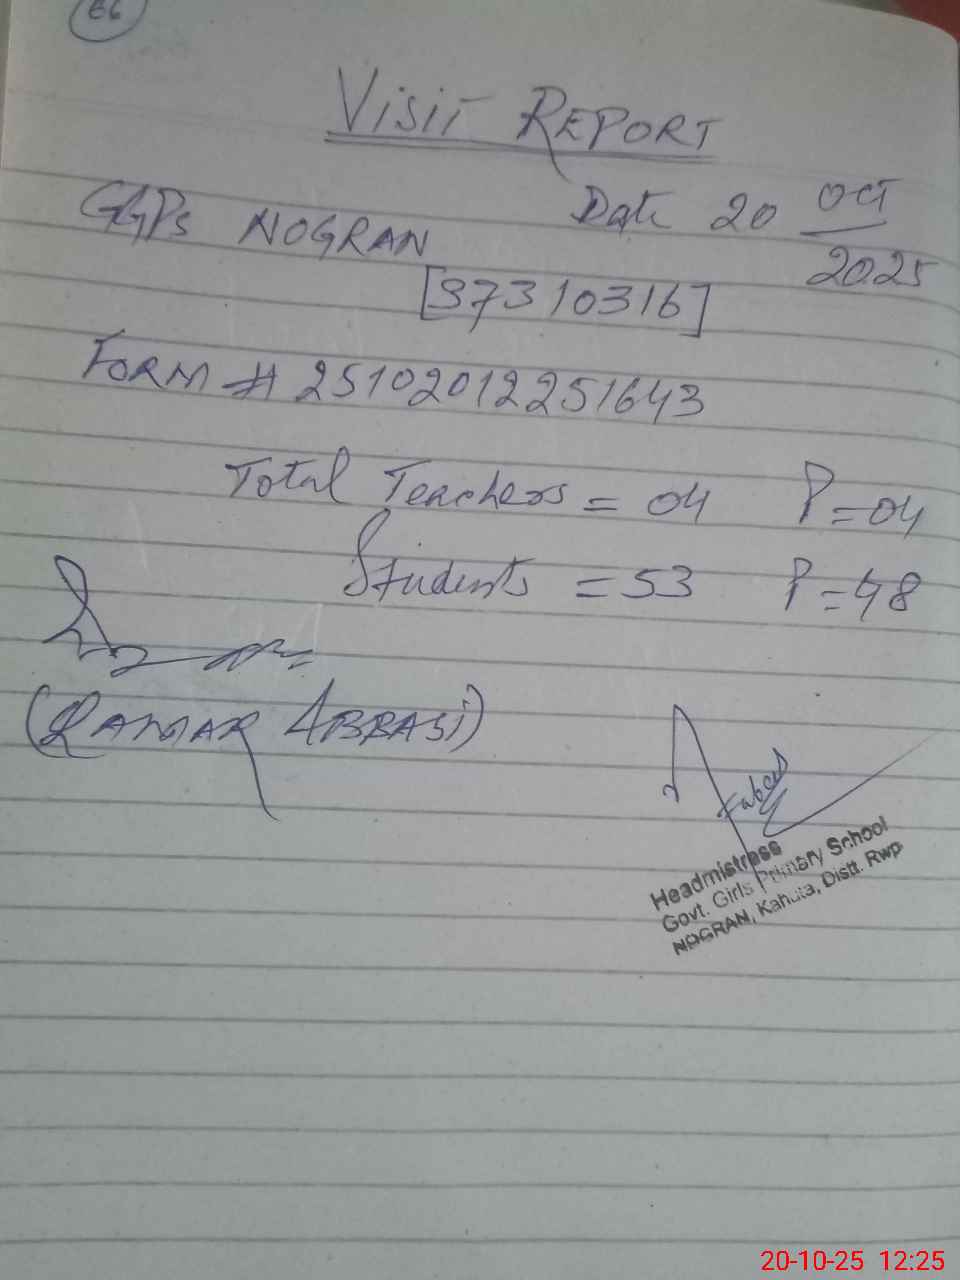 66
VISIT REPORT
GGPS NOGRAN Date 20 Oct
2025
[37310316]
FORM # 25102012251643
Total Teachers = 04 P = 04
Students = 53 P = 48
(QAMAR ABBASI)
Headmistress
Govt. Girls Primary School
NOGRAN, Kahuta, Distt. Rwp
20-10-25 12:25